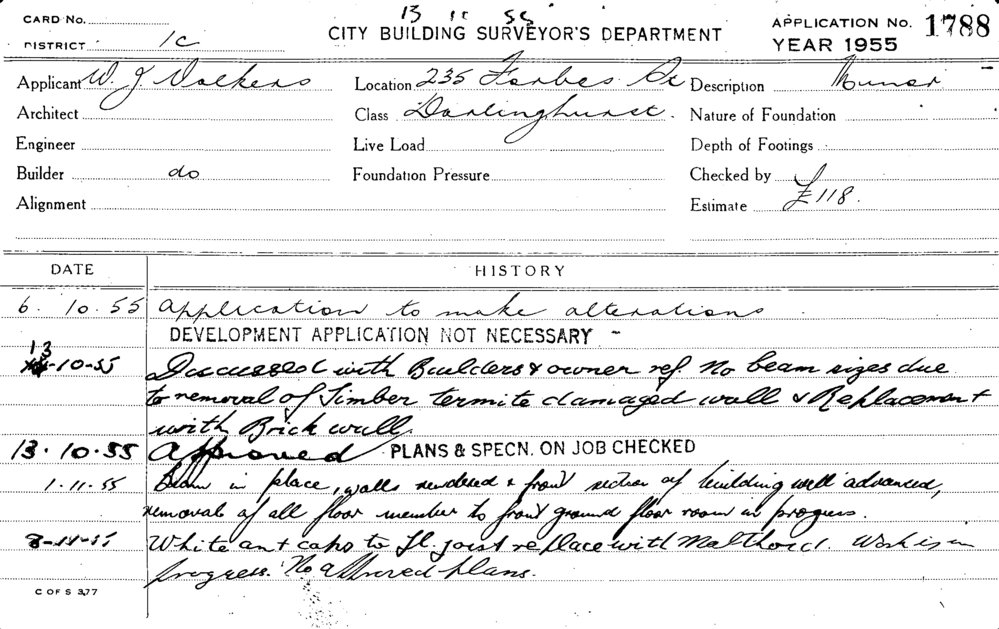 CARD No.
13 11 55
CITY BUILDING SURVEYOR'S DEPARTMENT
APPLICATION No. 1788
DISTRICT 1C
YEAR 1955
Applicant W. J. Volkers Location 235 Forbes St Description Minor
Architect Class Darlinghurst. Nature of Foundation
Engineer Live Load Depth of Footings
Builder do Foundation Pressure Checked by
Alignment Estimate £118.
DATE HISTORY
6. 10. 55 Application to make alterations.
DEVELOPMENT APPLICATION NOT NECESSARY -
13-10-55 Discussed with Builders & owner ref. No beam sizes due
to removal of Timber termite damaged wall & Replacement
with Brick wall.
13. 10. 55 Approved PLANS & SPECN. ON JOB CHECKED
1.11.55 Beam in place, walls rendered & front section of building well advanced,
removal of all floor member to front ground floor room in progress.
8-11-55 White ant caps to fl. joist replace with Malthoid. Work is in
progress. No approved plans.
C OF S 377